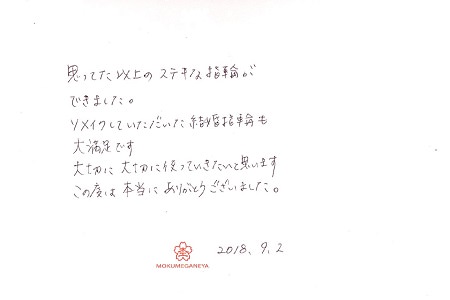 思ってた以上のステキな指輪が
できました。
リメイクしていただいた結婚指輪も
大満足です
大切に大切に使っていきたいと思います
この度は本当にありがとうございました。
2018. 9. 2
MOKUMEGANEYA